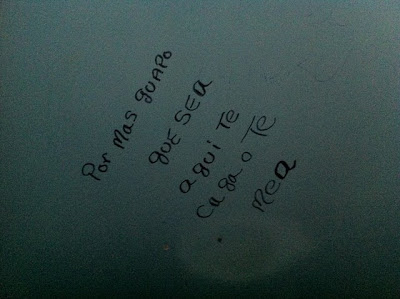 Por mas guapo
que sea
aqui te
caga o te
mea